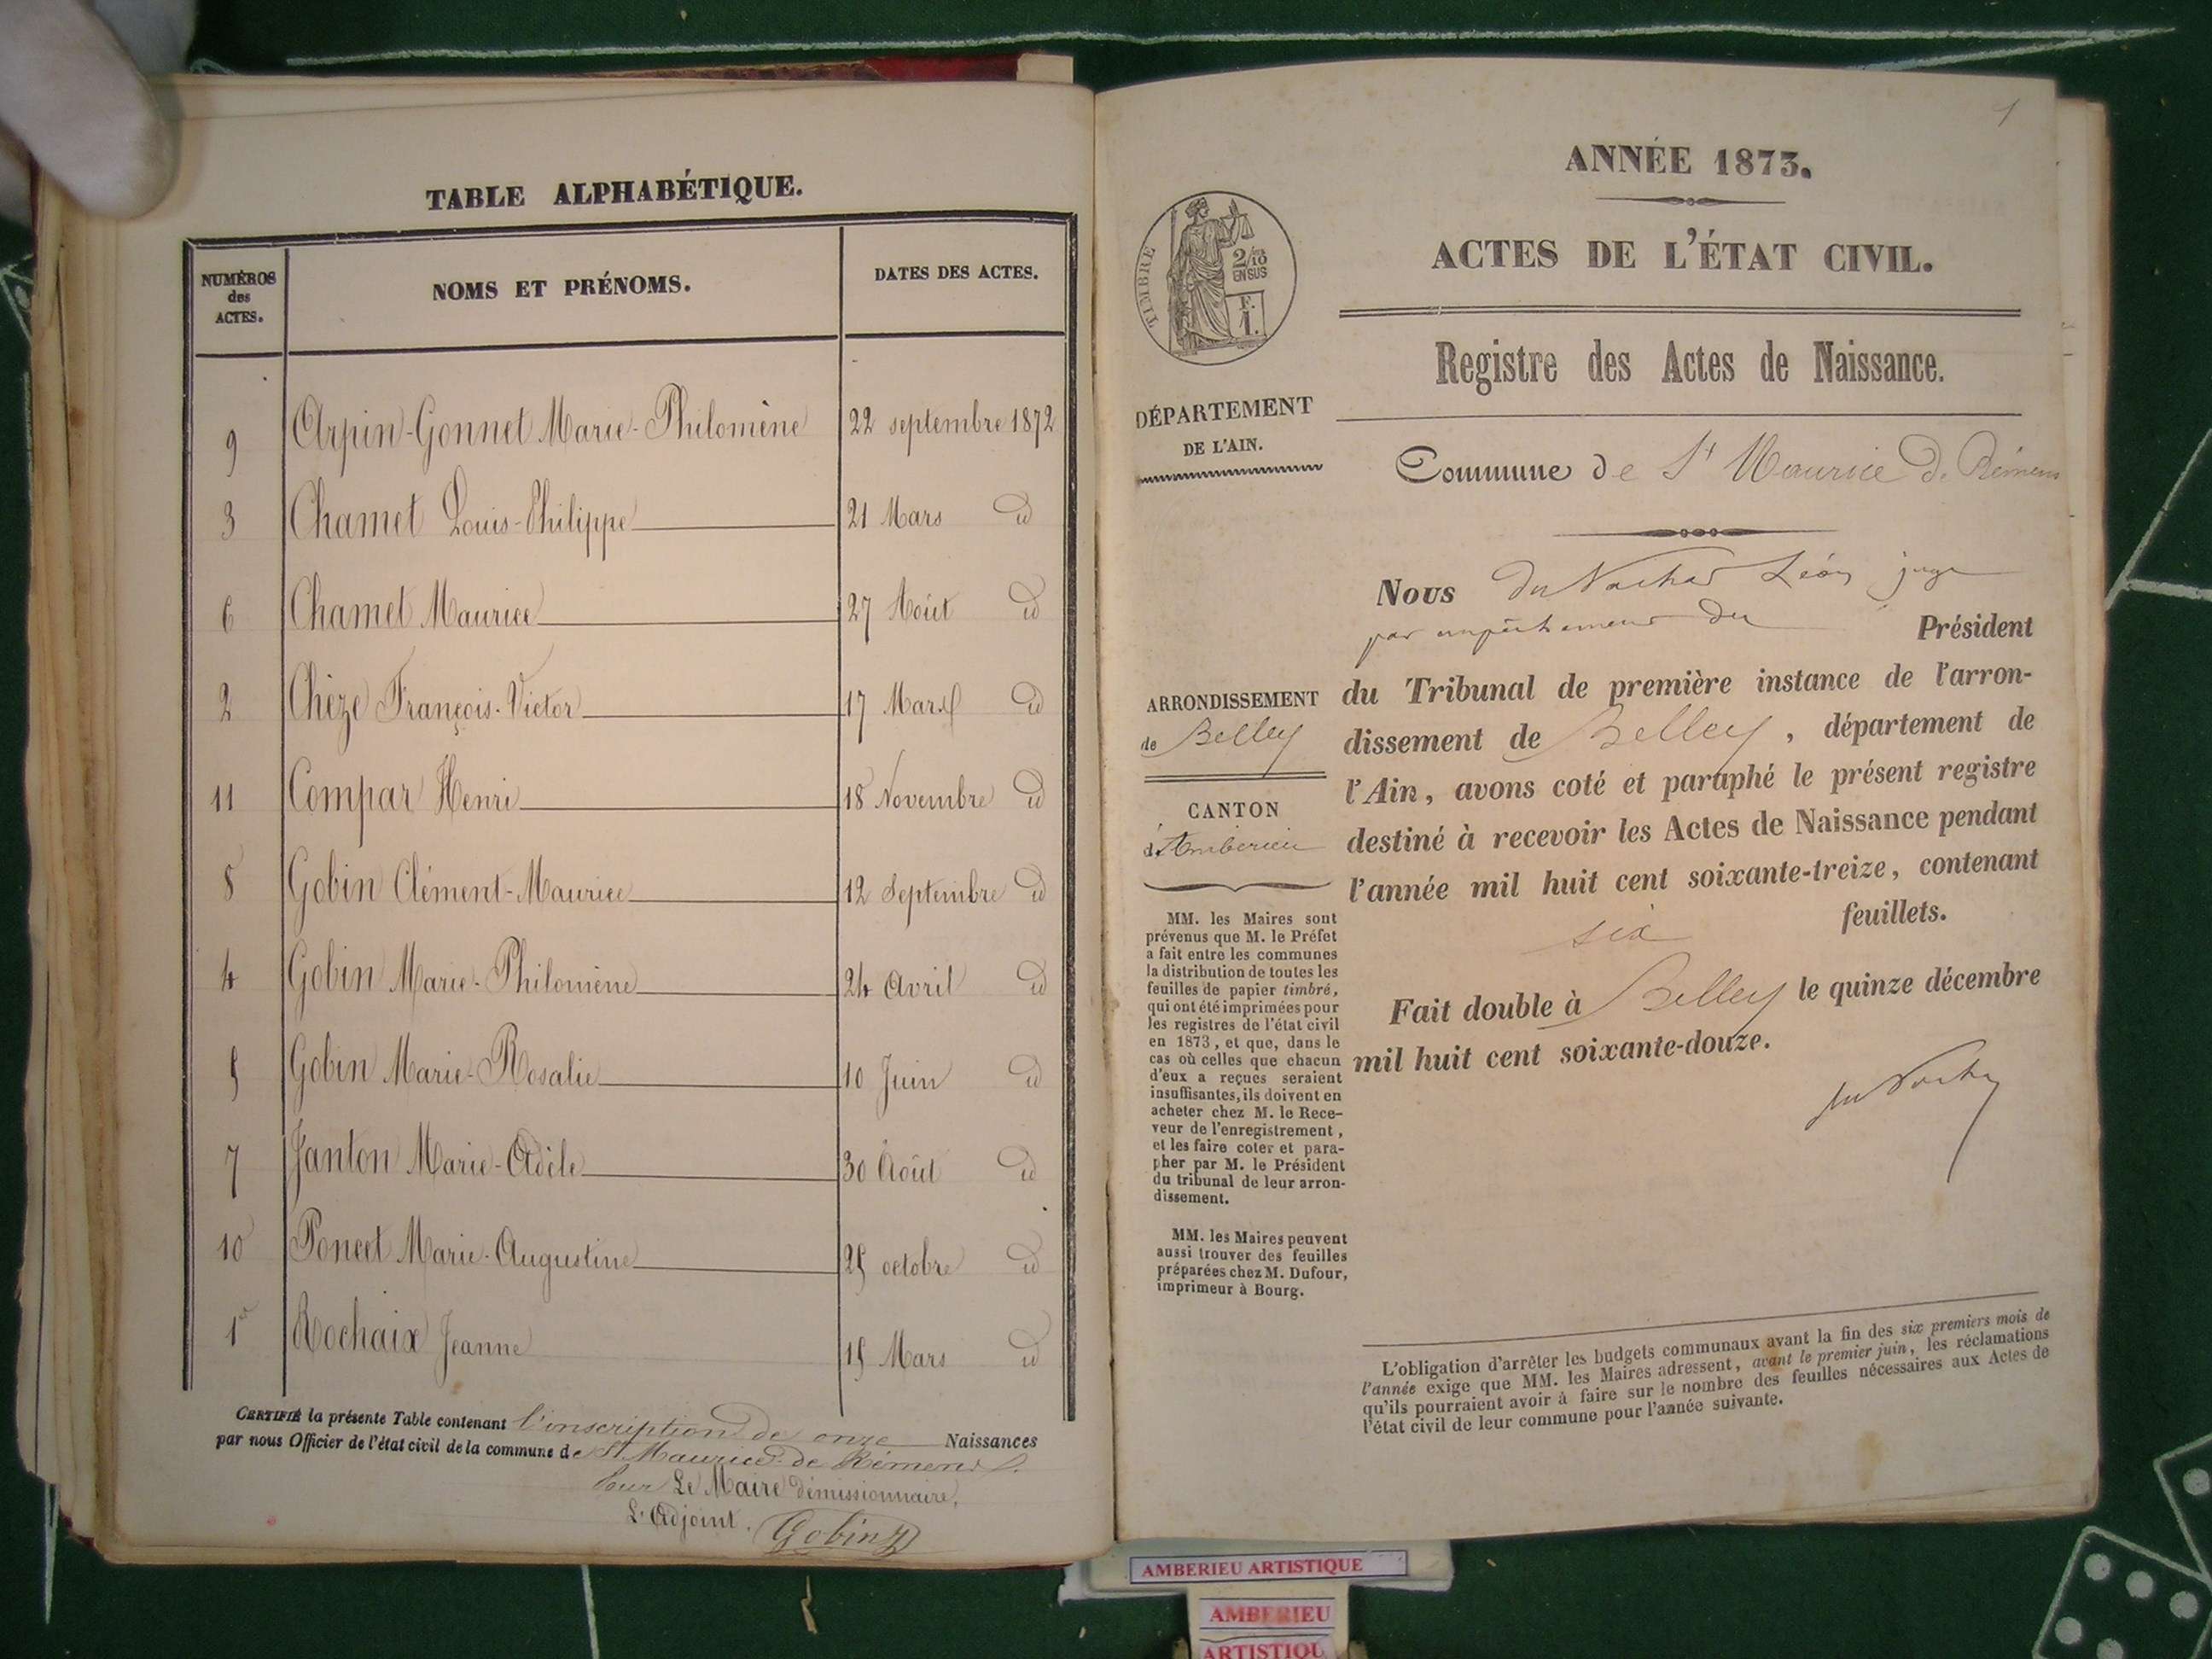 TABLE ALPHABÉTIQUE.
NUMÉROS des ACTES.
NOMS ET PRÉNOMS.
DATES DES ACTES.
9 Arpin-Gonnet Marie-Philomène 22 septembre 1872
3 Chamet Louis-Philippe 21 Mars id
6 Chamet Maurice 27 Août id
2 Chèze François-Victor 17 Mars id
11 Compar Henri 18 Novembre id
8 Gobin Clément-Maurice 12 Septembre id
4 Gobin Marie-Philomène 24 Avril id
5 Gobin Marie-Rosalie 10 Juin id
7 Janton Marie-Adèle 30 Août id
10 Poncet Marie-Augustine 25 octobre id
1er Rochaix Jeanne 15 Mars id
CERTIFIÉ la présente Table contenant l'inscription de onze Naissances
par nous Officier de l'état civil de la commune de St Maurice-de Rémens.
Pour Le Maire démissionnaire,
L'Adjoint. Gobin
1
ANNÉE 1873.
ACTES DE L'ÉTAT CIVIL.
Registre des Actes de Naissance.
TIMBRE
2/10
EN SUS
F.
1.
DÉPARTEMENT
DE L'AIN.
ARRONDISSEMENT
de Belley
CANTON
d'Ambérieu
MM. les Maires sont
prévenus que M. le Préfet
a fait entre les communes
la distribution de toutes les
feuilles de papier timbré,
qui ont été imprimées pour
les registres de l'état civil
en 1873, et que, dans le
cas où celles que chacun
d'eux a reçues seraient
insuffisantes, ils doivent en
acheter chez M. le Rece-
veur de l'enregistrement,
et les faire coter et para-
pher par M. le Président
du tribunal de leur arron-
dissement.
MM. les Maires peuvent
aussi trouver des feuilles
préparées chez M. Dufour,
imprimeur à Bourg.
Commune de St Maurice d. Rémens
Nous Léon juge
par empêchement du Président
du Tribunal de première instance de l'arron-
dissement de Belley, département de
l'Ain, avons coté et paraphé le présent registre
destiné à recevoir les Actes de Naissance pendant
l'année mil huit cent soixante-treize, contenant
six feuillets.
Fait double à Belley le quinze décembre
mil huit cent soixante-douze.
L'obligation d'arrêter les budgets communaux avant la fin des six premiers mois de
l'année exige que MM. les Maires adressent, avant le premier juin, les réclamations
qu'ils pourraient avoir à faire sur le nombre des feuilles nécessaires aux Actes de
l'état civil de leur commune pour l'année suivante.
AMBERIEU ARTISTIQUE
AMBERIEU
ARTISTIQU